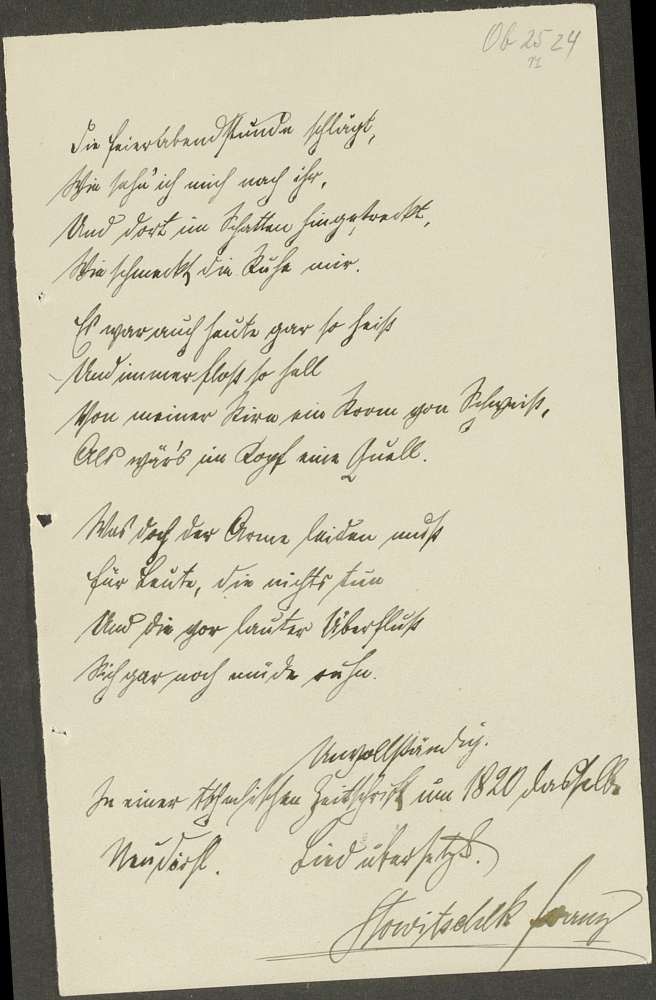 Ob 25 24
11
Die Feierabendstunde schlägt,
Wie sehn' ich mich nach ihr,
Und dort im Schatten hingestreckt,
Wie schmeckt die Ruhe mir.
Es war auch heute gar so heiß
Und immer floß so hell
Von meiner Stirn ein Strom von Schweiß,
Als wär's im Kopf eine Quell.
Was doch der Arme leiden muß
für Leute, die nichts tun
Und die vor lauter Überfluß
Sich gar noch müde ruhn.
Unvollständig.
In einer Zeitschrift um 1820 dasselbe
Neudörfl. Lied übersetzt.
Franz